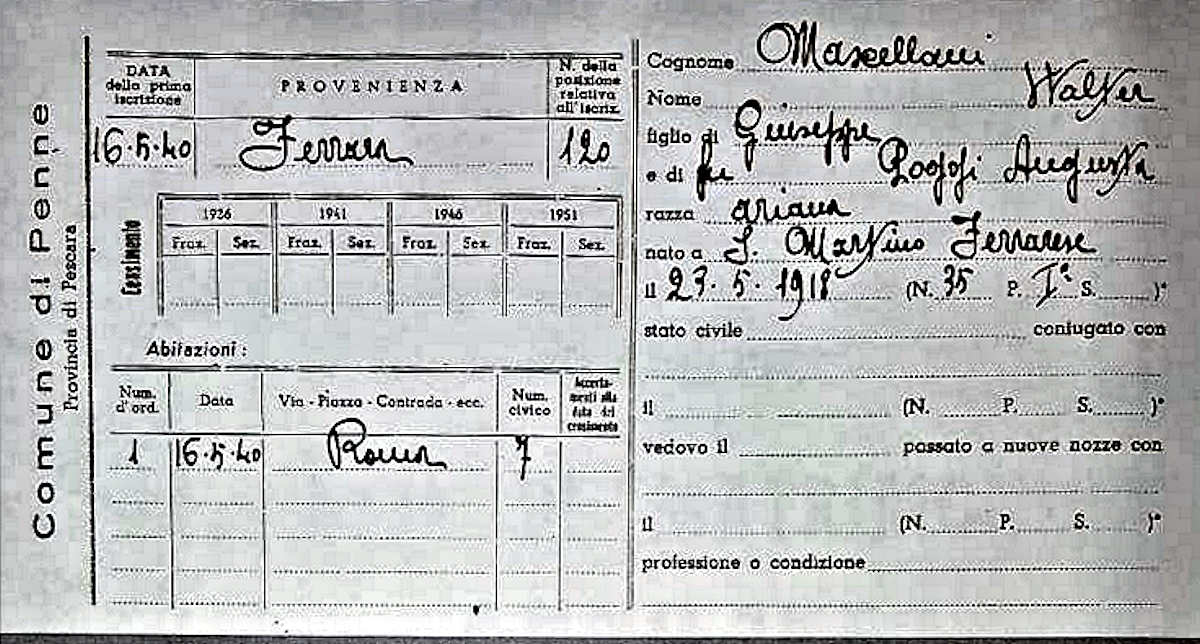 Comune di Penne
Provincia di Pescara
DATA della prima iscrizione
PROVENIENZA
N. della posizione relativa all'iscriz.
16.5.40 Ferrara 120
Censimento
1936 1941 1946 1951
Fraz. Sez. Fraz. Sez. Fraz. Sez. Fraz. Sez.
Abitazioni:
Num. d'ord. Data Via - Piazza - Contrada - ecc. Num. civico Accerta- menti alla data del censimento
1 16.5.40 Roma 7
Cognome Mascellani
Nome Walter
figlio di Giuseppe
e di fu Poggi Augusta
razza ariana
nato a S. Martino Ferrarese
il 23.5.1918 (N. 35 P. Iª S. )°
stato civile coniugato con
il (N. P. S. )°
vedovo il passato a nuove nozze con
il (N. P. S. )°
professione o condizione